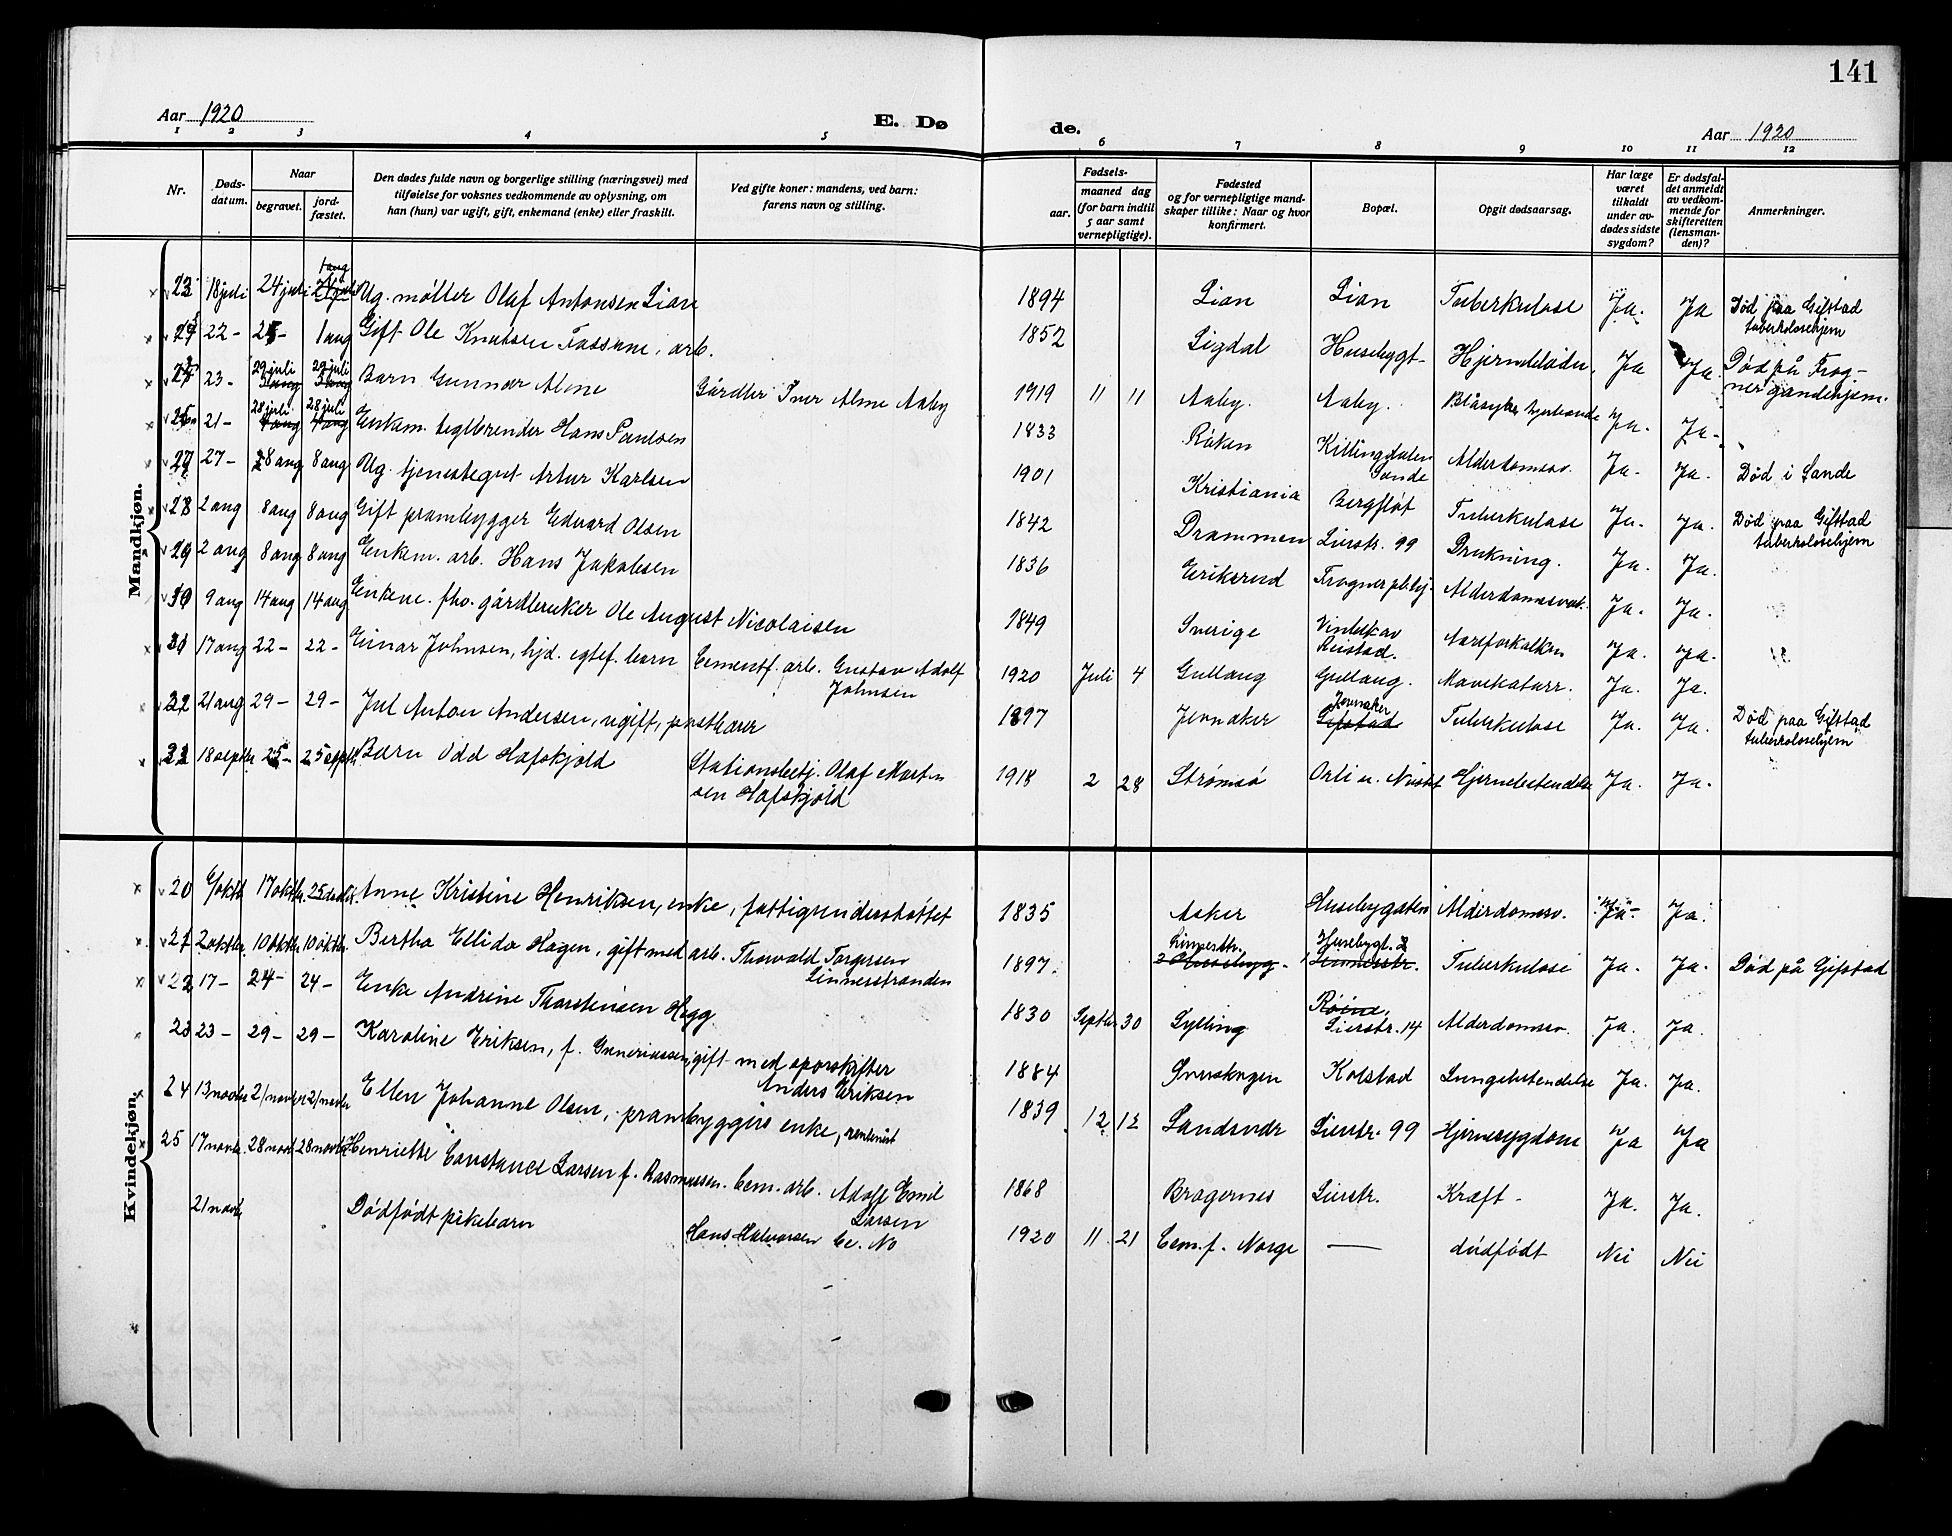 141
Aar 1920
E. Dø
de.
Aar 1920
1 2 3 4 5 6 7 8 9 10 11 12
Nr.
Døds-
datum.
Naar
begravet.
jord-
fæstet.
Den dødes fulde navn og borgerlige stilling (næringsvei) med
tilføielse for voksnes vedkommende av oplysning, om
han (hun) var ugift, gift, enkemand (enke) eller fraskilt.
Ved gifte koner: mandens, ved barn:
farens navn og stilling.
Fødsels-
aar.
maaned dag
(for barn indtil
5 aar samt
vernepligtige).
Fødested
og for vernepligtige mand-
skaper tillike: Naar og hvor
konfirmert.
Bopæl.
Opgit dødsaarsag.
Har læge
været
tilkaldt
under av-
dødes sidste
sygdom?
Er dødsfal-
det anmeldt
av vedkom-
mende for
skifteretten
(lensman-
den)?
Anmerkninger.
Mandkjøn.
23 18 juli 24 juli 1 aug Ug. møller Olaf Antonsen Lian 1894 Lian Lian Tuberkulose Ja. Ja Død paa Gifstad
tuberkolosehjem
22 - 1 aug Gift Ole Knutsen Fossum, arb. 1852 Sigdal Husebygt. Ja Ja Død på Frog-
ner gamlehjem.
23 - 29 juli 29 juli Barn Gunnar Alme Gårdbr Iver Alme Aaby 1919 11 11 Aaby. Aaby. Ja. Ja.
21 - 28 juli 28 juli Enkem. teglbrender Hans Paulsen 1833 Röken Killingdalen
Sande Alderdomssv. Ja. Ja. Død i Sande
27 - 8 aug 8 aug Ug. tjenestegut Artur Karlsen 1901 Kristiania Bergfløt Tuberkulose Ja. Ja. Død paa Gifstad
tuberkolosehjem
28 2 aug 8 aug 8 aug Gift prambygger Edvard Olsen 1842 Drammen Lierstr. 99 Drukning. Ja. Ja.
29 2 aug 8 aug 8 aug Enkem. arb. Hans Jakobsen 1836 Eriksrud Frogner pleiehj. Ja. Ja.
30 9 aug 14 aug 14 aug Enkem. fhv. gårdbruker Ole August Nicolaisen 1849 Sverige Aareforkalkn Ja. Ja.
31 17 aug 22 - 22 - Einar Johnsen, hjd. egtef. barn Cementf. arb. Gustav Adolf
Johnsen 1920 Juli 4 Gullaug Gullaug. Mavekatarr. Ja. Ja.
32 21 aug 29 - 29 - Jul Anton Andersen, ugift, postbærer 1897 Jevnaker Jevnaker
Gifstad Tuberkulose Ja. Ja. Død paa Gifstad
tuberkolosehjem
33 18 septbr 25 - 25 septbr. Barn Odd Hafskjold Stationsbetj. Olaf Mart
sen Hafskjold 1918 2 28 Strømsø Hjernebetendelse Ja. Ja.
Kvindekjøn.
20 17 oktbr. Anne Kristine Henriksen, enke, fattigunderstøttet 1835 Asker Husebygaten Alderdomssv. Ja Ja.
21 2 oktbr. 10 oktbr. 10 oktbr. Bertha Ellida Hagen, gift med arb. Thorvald Torgersen
Linnerstranden 1897. Linnerstr.
Husebyg - Husebygt. 2
Linnerstr. Tuberkulose Ja. Ja. Død på Gifstad
22 17 - 24 - 24 - Enke Andrine Thorstensen Hegg 1830 Septbr 30 Sylling Lierstr. 14 Alderdomssv. Ja. Ja.
23 23 - 29 - 29 - Karoline Eriksen, f. gift med sporskifter
Anders Eriksen 1884 Kolstad Lungebetendelse Ja. Ja.
24 13 novbr 21 novbr 21 novbr Ellen Johanne Olsen, prambyggers enke, rentenist 1839 12 12 Sandsvær Lierstr. 99 Hjernesygdom Ja Ja
25 17 novbr. 28 novb 28 novbr Henriette Constance Larsen f. Rasmussen. Cem. arb. Adolf Emil
Larsen 1868 Bragernes Lierstr. Kræft - Ja. Ja.
21 novb Dødfødt pikebarn Hans Halvorsen Ce. No 1920 11 21 Cem. f. Norge — dødfødt Nei Nei